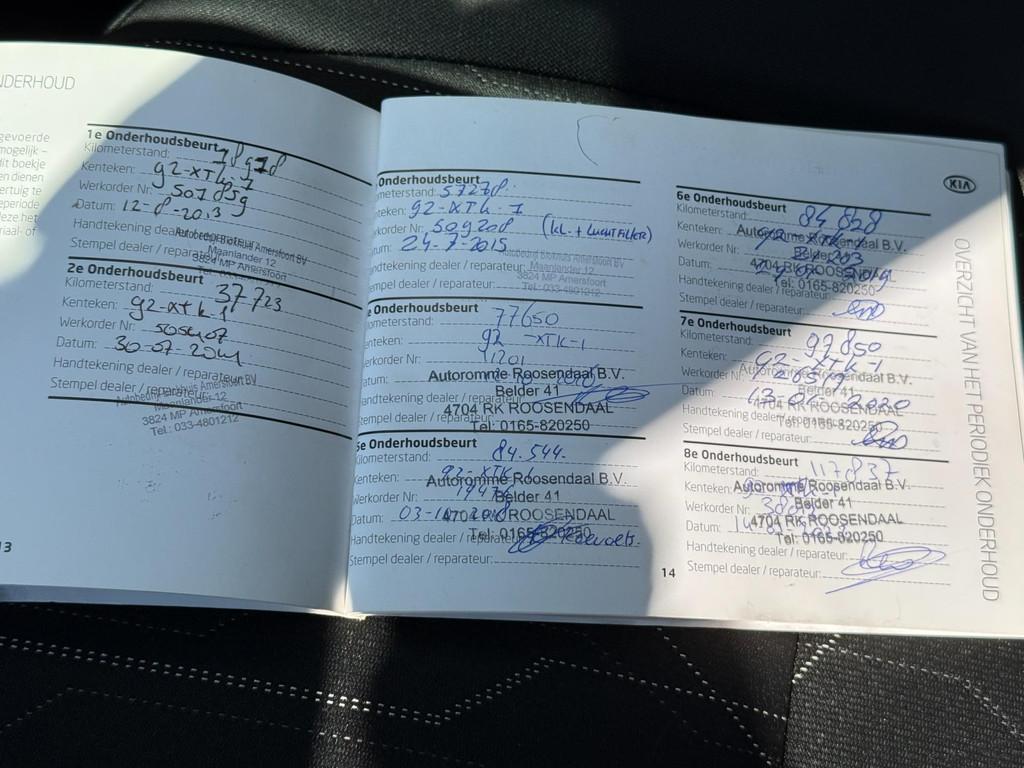 NDERHOUD
gevoerde
mogelijk –
dit boekje
en dienen
ertuig te
periode
deze het
riaal- of
1e Onderhoudsbeurt
Kilometerstand: 18978
Kenteken: 92-XTK-7
Werkorder Nr: 507859
Datum: 12-8-2013
Handtekening dealer/reparateur:
Autobedrijf Blokhuis Amersfoort BV
Maanlander 12
3824 MP Amersfoort
Stempel dealer / reparateur:
2e Onderhoudsbeurt
Kilometerstand: 37723
Kenteken: 92-XTK-1
Werkorder Nr:
Datum: 30-07-2014
Handtekening dealer / reparateur:
Stempel dealer / reparateur:
Autobedrijf Blokhuis Amersfoort BV
Maanlander 12
3824 MP Amersfoort
Tel.: 033-4801212
13
Onderhoudsbeurt
meterstand: 57278
teken: 92-XTK-1
rkorder Nr: 509208 (KL + LUCHTFILTER)
um: 24-7-2015
Handtekening dealer / reparateur:
Autobedrijf Blokhuis Amersfoort BV
Maanlander 12
3824 MP Amersfoort
Tel.: 033-4801212
Stempel dealer / reparateur:
Onderhoudsbeurt
ometerstand: 77650
nteken: 92-XTK-1
erkorder Nr: 11201
atum:
Autoromme Roosendaal B.V.
Belder 41
4704 RK ROOSENDAAL
Tel: 0165-820250
Handtekening dealer / reparateur:
Stempel dealer / reparateur:
5e Onderhoudsbeurt
Kilometerstand: 84.544.
Kenteken: 92-XTK-1
Autoromme Roosendaal B.V.
Werkorder Nr:
Belder 41
Datum: 03-10-2018
4704 RK ROOSENDAAL
Tel: 0165-820250
Handtekening dealer / reparateur:
Stempel dealer / reparateur:
KIA
6e Onderhoudsbeurt
Kilometerstand: 84868
Kenteken: 92-XTK-1
Autoromme Roosendaal B.V.
Werkorder Nr:
Belder 41
Datum:
4704 RK ROOSENDAAL
Tel: 0165-820250
Handtekening dealer / reparateur:
Stempel dealer / reparateur:
7e Onderhoudsbeurt
Kilometerstand: 97850
Kenteken: 92-XTK-1
Autoromme Roosendaal B.V.
Werkorder Nr:
Belder 41
Datum:
4704 RK ROOSENDAAL
Tel: 0165-820250
Handtekening dealer / reparateur:
Stempel dealer / reparateur:
8e Onderhoudsbeurt
Kilometerstand: 117837
Kenteken:
Autoromme Roosendaal B.V.
Werkorder Nr:
Belder 41
Datum:
4704 RK ROOSENDAAL
Tel: 0165-820250
Handtekening dealer / reparateur:
Stempel dealer / reparateur:
14
OVERZICHT VAN HET PERIODIEK ONDERHOUD